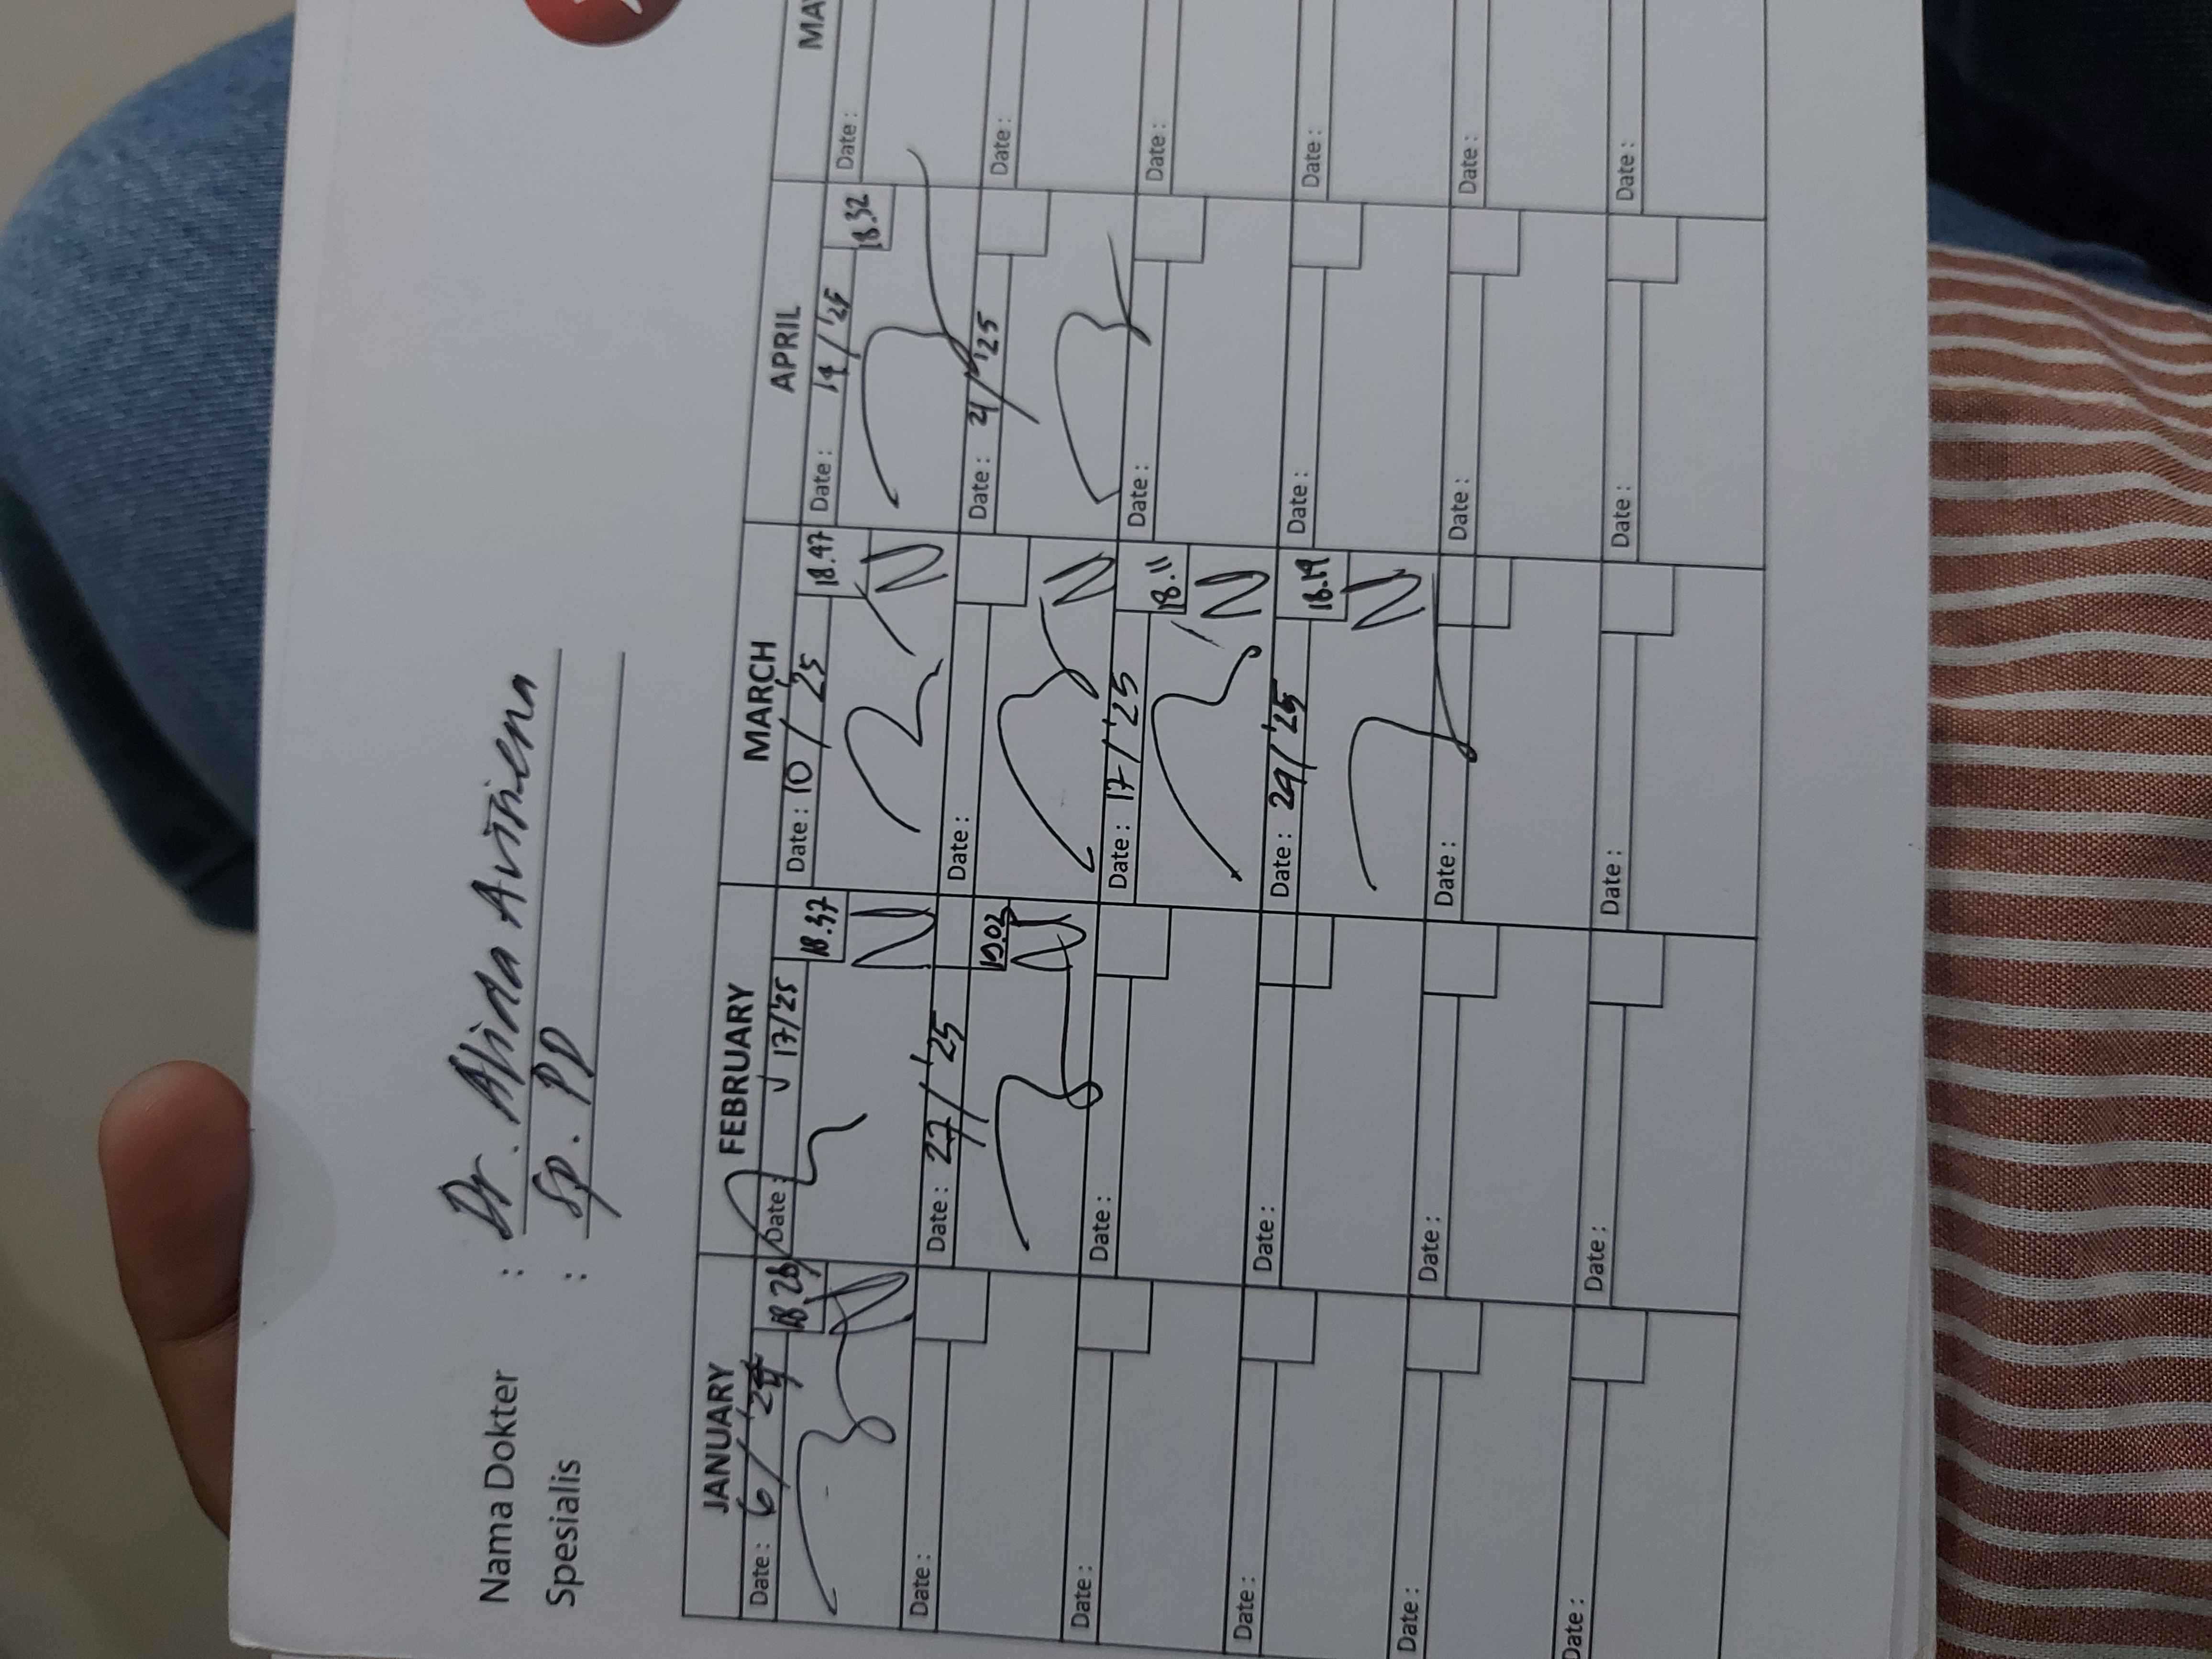 Nama Dokter : Dr. Alvida Avisiena
Spesialis : Sp. PD
JANUARY FEBRUARY MARCH APRIL
Date : 6/'24 18.28 Date : 17/'25 18.37 Date : 10/'25 18.47 Date : 14/'25 18.32 Date :
Date : Date : 27/'25 19.02 Date : Date : 21/'25 Date :
Date : Date : Date : 17/'25 18.11 Date : Date :
Date : Date : Date : 24/'25 18.19 Date : Date :
Date : Date : Date : Date : Date :
Date : Date : Date : Date : Date :